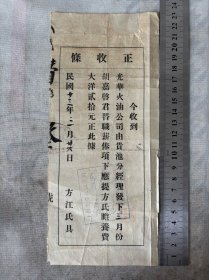 正收條
今收到
光華火油公司由貴池分經理發下三月份
胡嘉啓君晉職薪俸項下應提方氏贍養費
大洋貳拾元正此據
民國廿二年三月廿六日
方江氏具